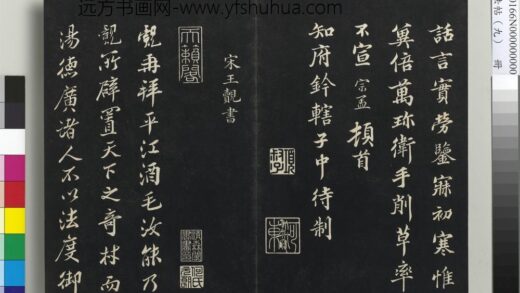 远方书画网-www.yfshuhua.com
帖（九） 冊
話言實勞鑒寐初寒惟
冀倍萬珎衛手削草率
不宣 宗孟 頓首
知府鈐轄子中待制
宋王覿書
天籟閣
覿再拜平江酒毛汝能乃
覿所辟置天下之奇材而
湯德廣諸人不以法度御